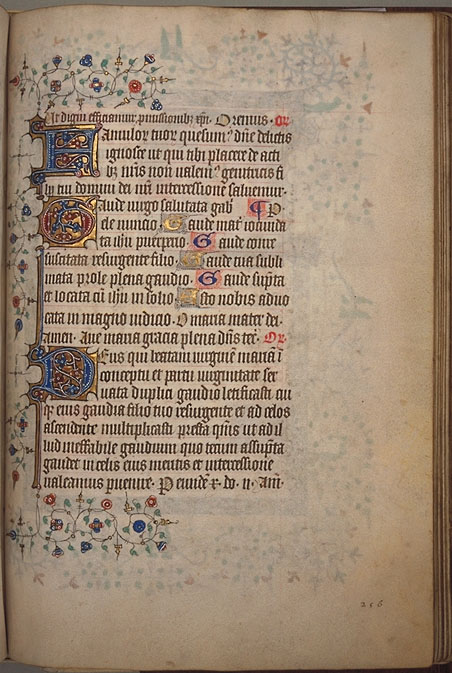 Ut digni efficiamur, p̄missionibꝫ xp̄i. Oremus. or
Famulor tuor quesum9 dn̄e delictis
ignosce ut qui tibi placere de acti
bꝫ nr̄is non valem9 genitricis fi
lij tui domini dei nr̄i intercessione saluemur.
Gaude virgo salutata gab¶ P
dele nuncio. Gaude mat̄ iocunda
ta ih̄u puerperio. Gaude conre
suscitata resurgente filio. Gaude tua subli
mata prole plena gaudio. Gaude sup̄ta
et locata cū ih̄u in solio. Esto nobis aduo
cata in magno iudicio. O maria mater dei.
amen. Aue maria gracia plena dn̄s tec̄. Or.
Deus qui beatam virginē mariā ī
conceptu et partu virginitate ser
uata duplici gaudio letificasti cui
qꝫ eius gaudia filio tuo resurgente et ad celos
ascendente multiplicasti presta q̄s ut ad il
lud ineffabile gaudium quo tecum assūpta
gaudet in celis eius meritis et intercessione
valeamus puenire. P eund̄e x. do. n. Am̄.
256